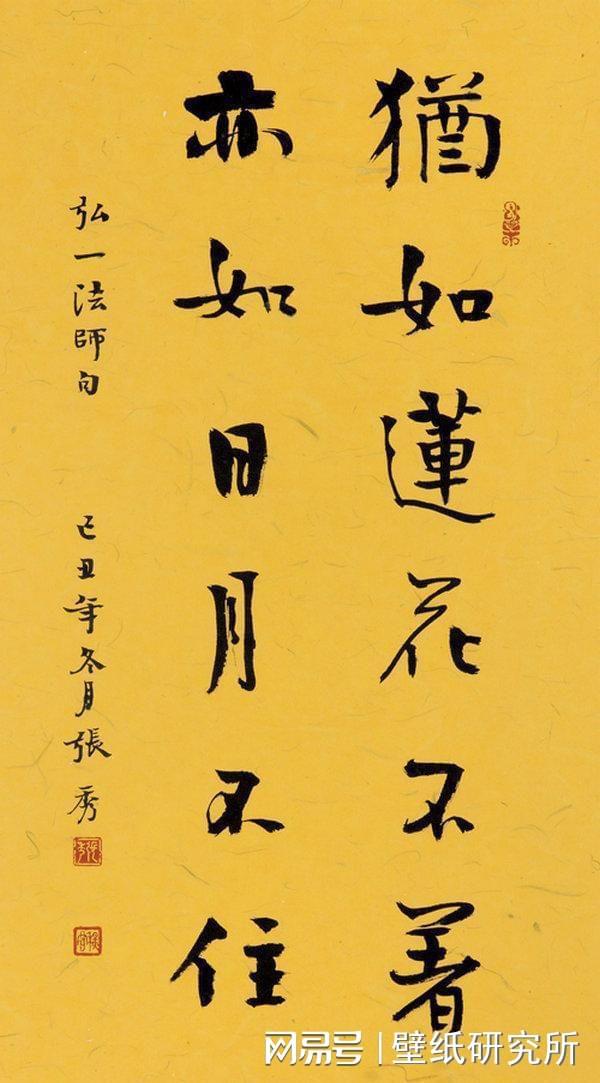 猶如蓮花不著
亦如日月不住
弘一法師句
己丑年冬月張秀
网易号 | 壁纸研究所